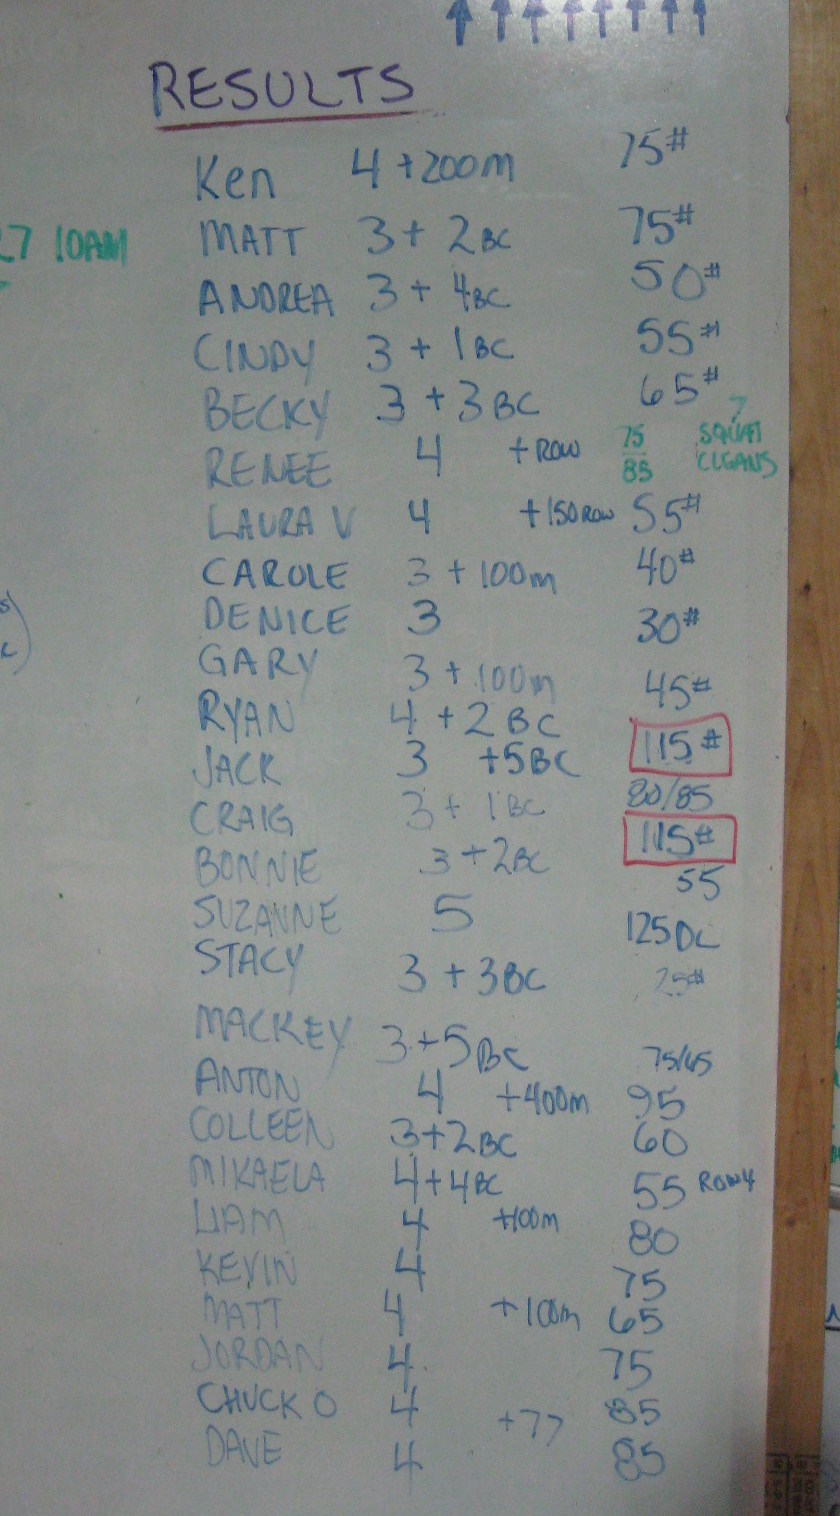 RESULTS
Ken 4 +200m 75#
MATT 3 + 2BC 75#
27 10AM
ANDREA 3 + 4BC 50#
CINDY 3 + 1BC 55#
BECKY 3 + 3BC 65#
RENEE 4 + ROW 75/85 ? SQUAT CLEANS
LAURA V 4 +150 ROW 55#
CAROLE 3 + 100m 40#
DENICE 3 30#
GARY 3 + 100m 45#
RYAN 4 + 2BC 115#
JACK 3 +5BC 80/85
CRAIG 3 + 1BC 115#
BONNIE 3 + 2BC 55
SUZANNE 5 125DL
STACY 3 + 3BC
MACKEY 3+5BC 75/65
ANTON 4 +400m 95
COLLEEN 3+2BC 60
MIKAELA 4+4BC 55 ROW 4
LIAM 4 +100m 80
KEVIN 4 75
MATT 4 +100m 65
JORDAN 4 75
CHUCK O 4 +77 85
DAVE 4 85